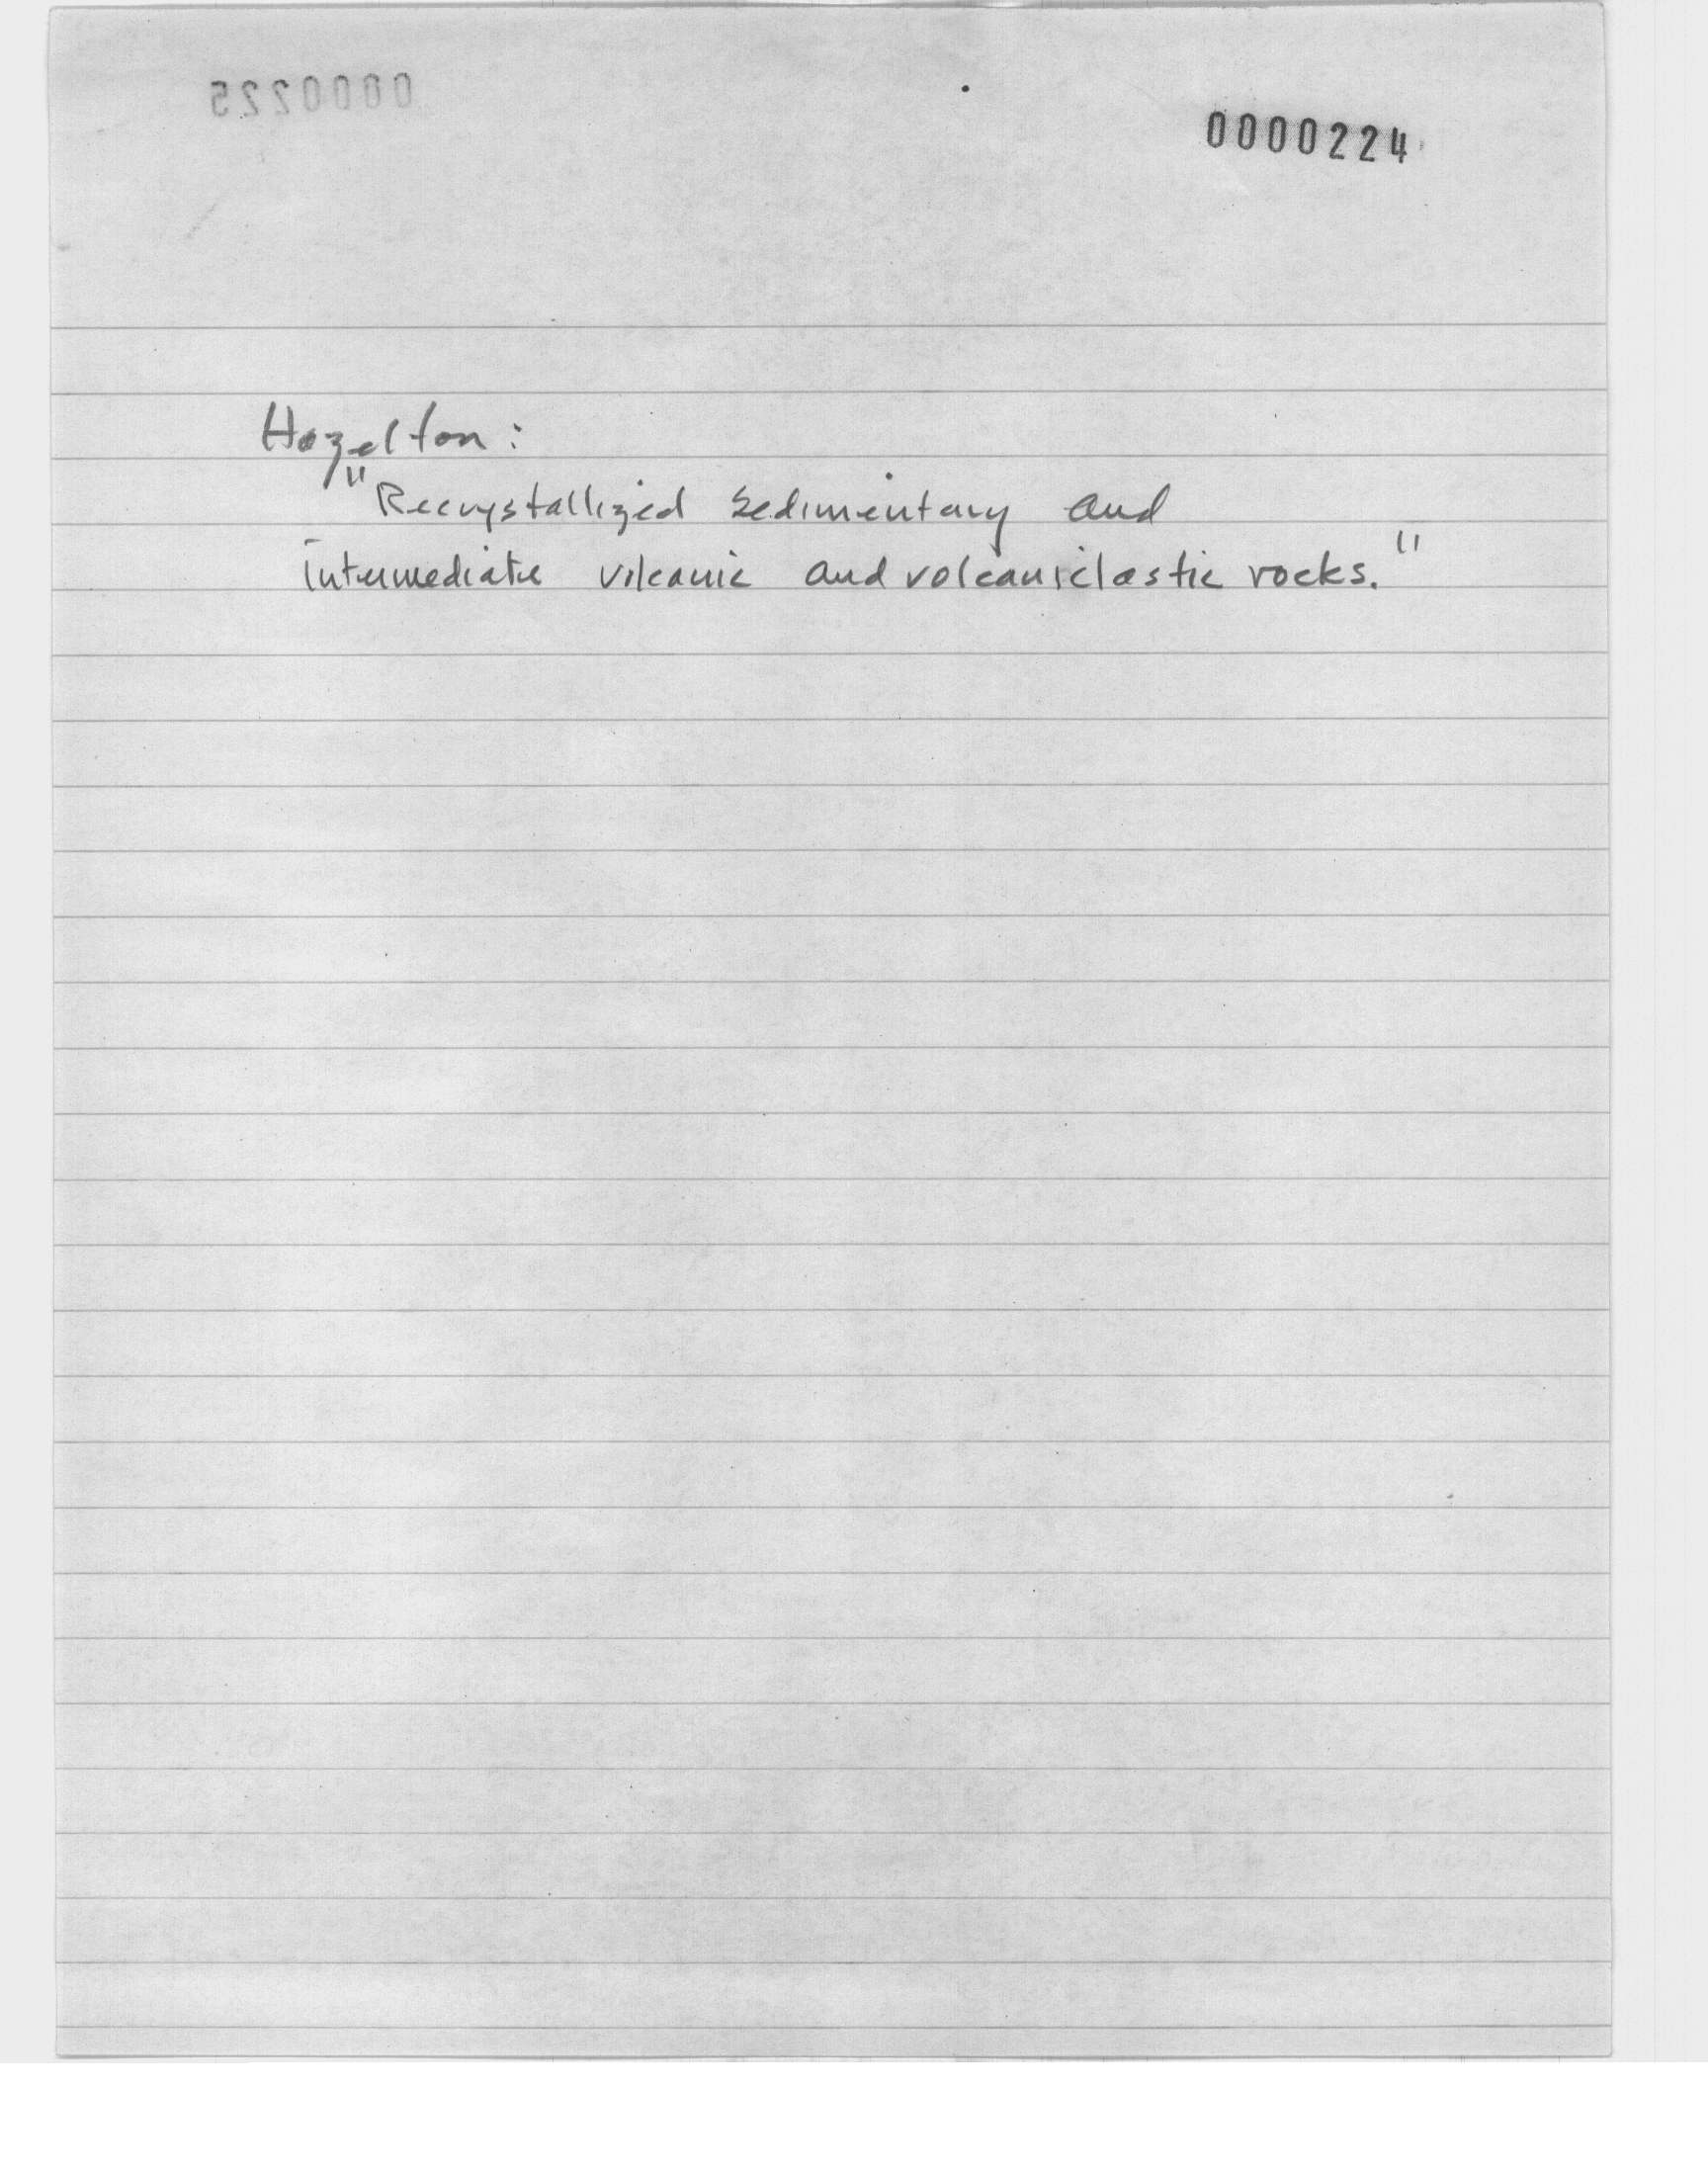 0000225
0000224
Hazelton:
"Recrystallized sedimentary and
intermediate volcanic and volcaniclastic rocks."